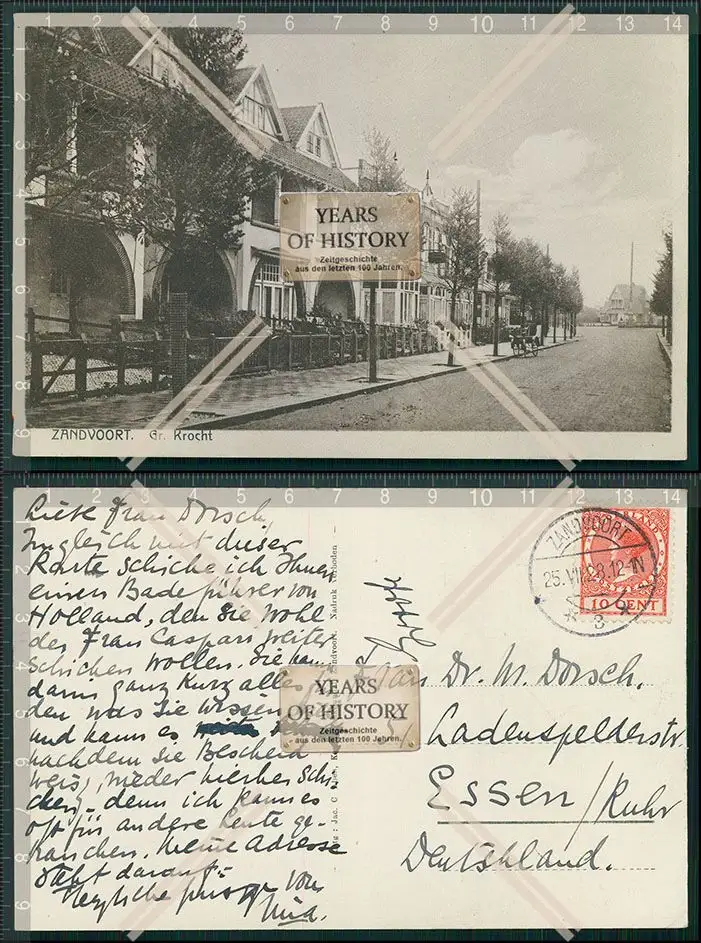 YEARS
OF HISTORY
Zeitgeschichte
aus den letzten 100 Jahren.
ZANDVOORT. Gr. Krocht
Liebe Frau Dorsch,
Zugleich mit dieser
Karte schicke ich Ihnen
einen Badeführer von
Holland, den Sie wohl
der Frau Caspari weiter
schicken wollen. Sie kann
dann ganz kurz alles
den, was Sie wissen
und kann es
nachdem Sie Bescheid
weis, wieder hierher schi-
cken, denn ich kann es
oft für andere Leute ge-
brauchen. Meine Adresse
steht darauf.
Herzliche von
ZANDVOORT
25.VII.28.12-1N
3
10 CENT
Frau Dr. M. Dorsch.
Ladenspelderstr.
Essen/Ruhr
Deutschland.
Zandvoort. Nadruk verboden
YEARS
OF HISTORY
Zeitgeschichte
aus den letzten 100 Jahren.